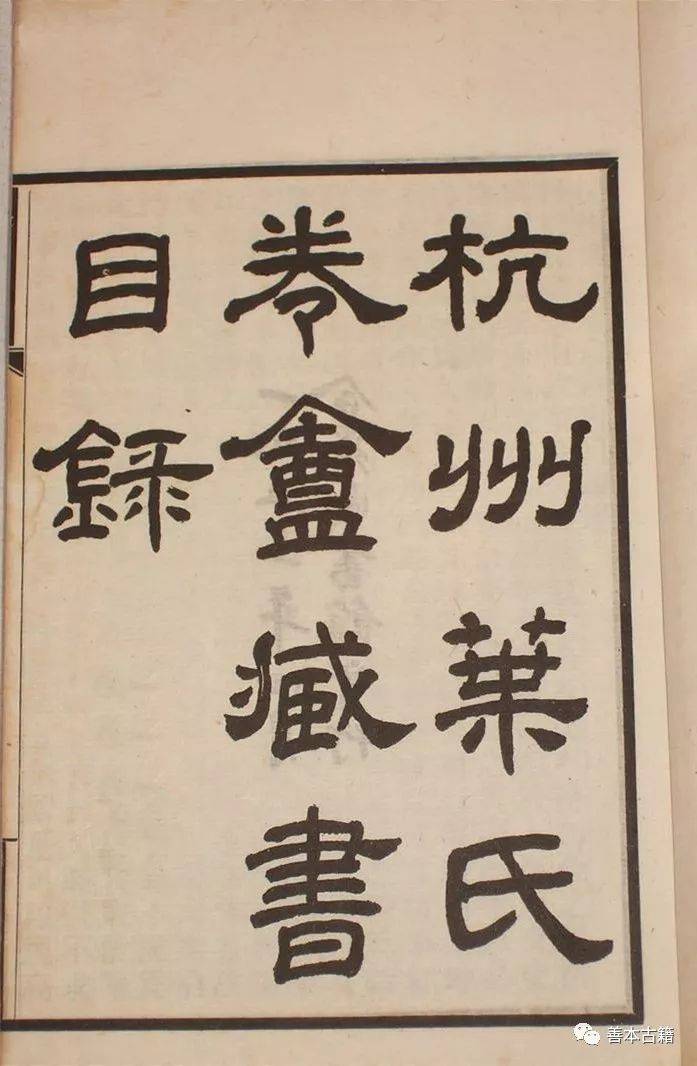 杭州葉氏
卷盦藏書
目錄
善本古籍